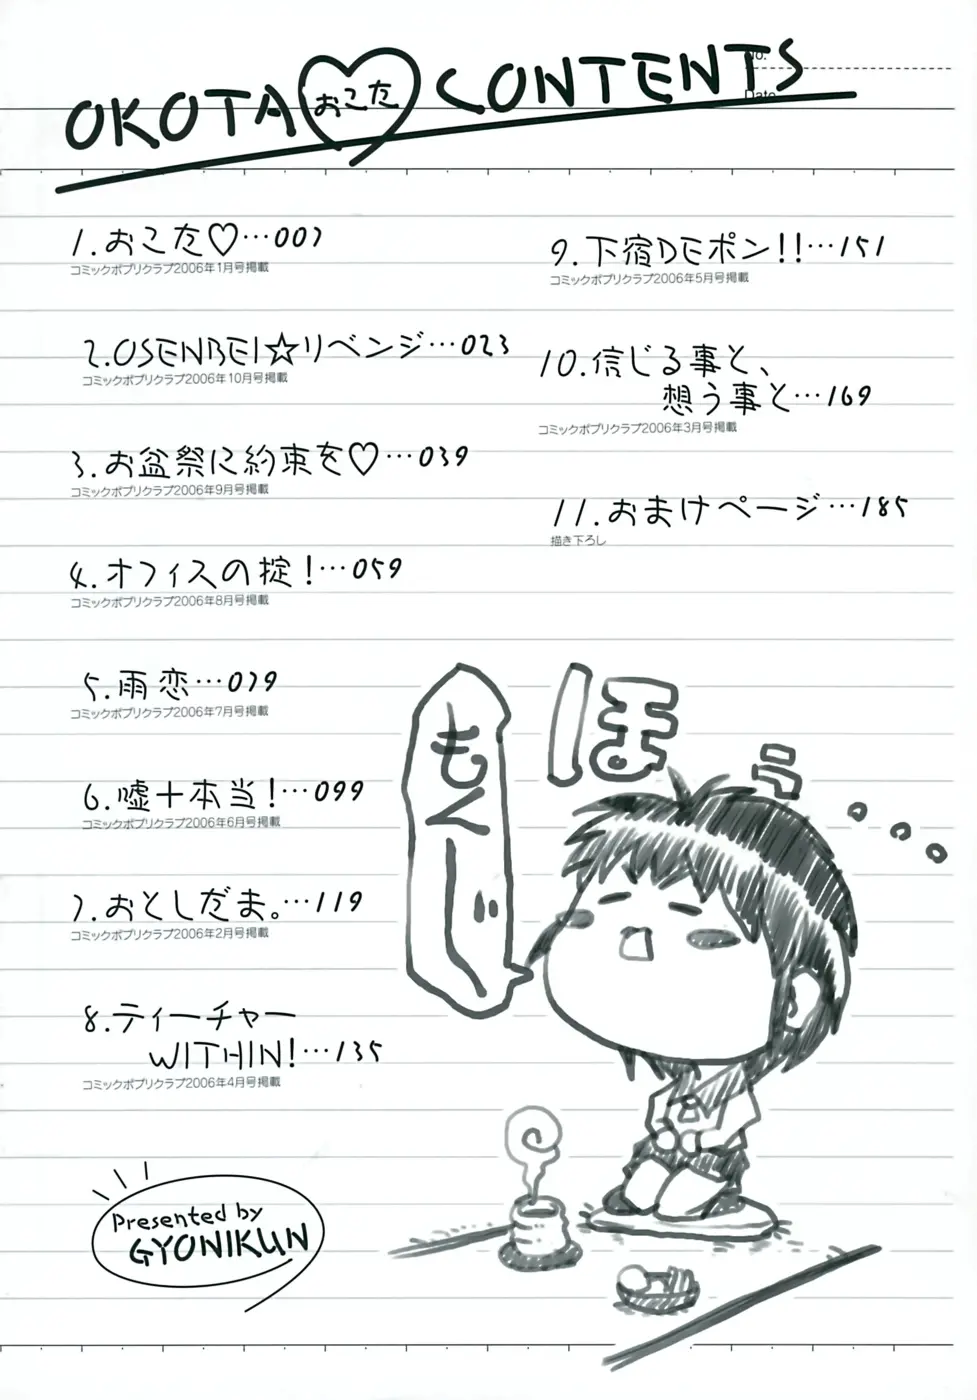 No.
Date
OKOTA おこた CONTENTS
1.おこた♡…007
コミックポプリクラブ2006年1月号掲載
2.OSENBEI☆リベンジ…023
コミックポプリクラブ2006年10月号掲載
3.お盆祭に約束を♡…039
コミックポプリクラブ2006年9月号掲載
4.オフィスの掟!…059
コミックポプリクラブ2006年8月号掲載
5.雨恋…079
コミックポプリクラブ2006年7月号掲載
6.嘘+本当!…099
コミックポプリクラブ2006年6月号掲載
7.おとしだま。…119
コミックポプリクラブ2006年2月号掲載
8.ティーチャー
WITHIN!…135
コミックポプリクラブ2006年4月号掲載
9.下宿DEポン!!…151
コミックポプリクラブ2006年5月号掲載
10.信じる事と、
想う事と…169
コミックポプリクラブ2006年3月号掲載
11.おまけページ…185
描き下ろし
ほぅ
Presented by
GYONIKUN